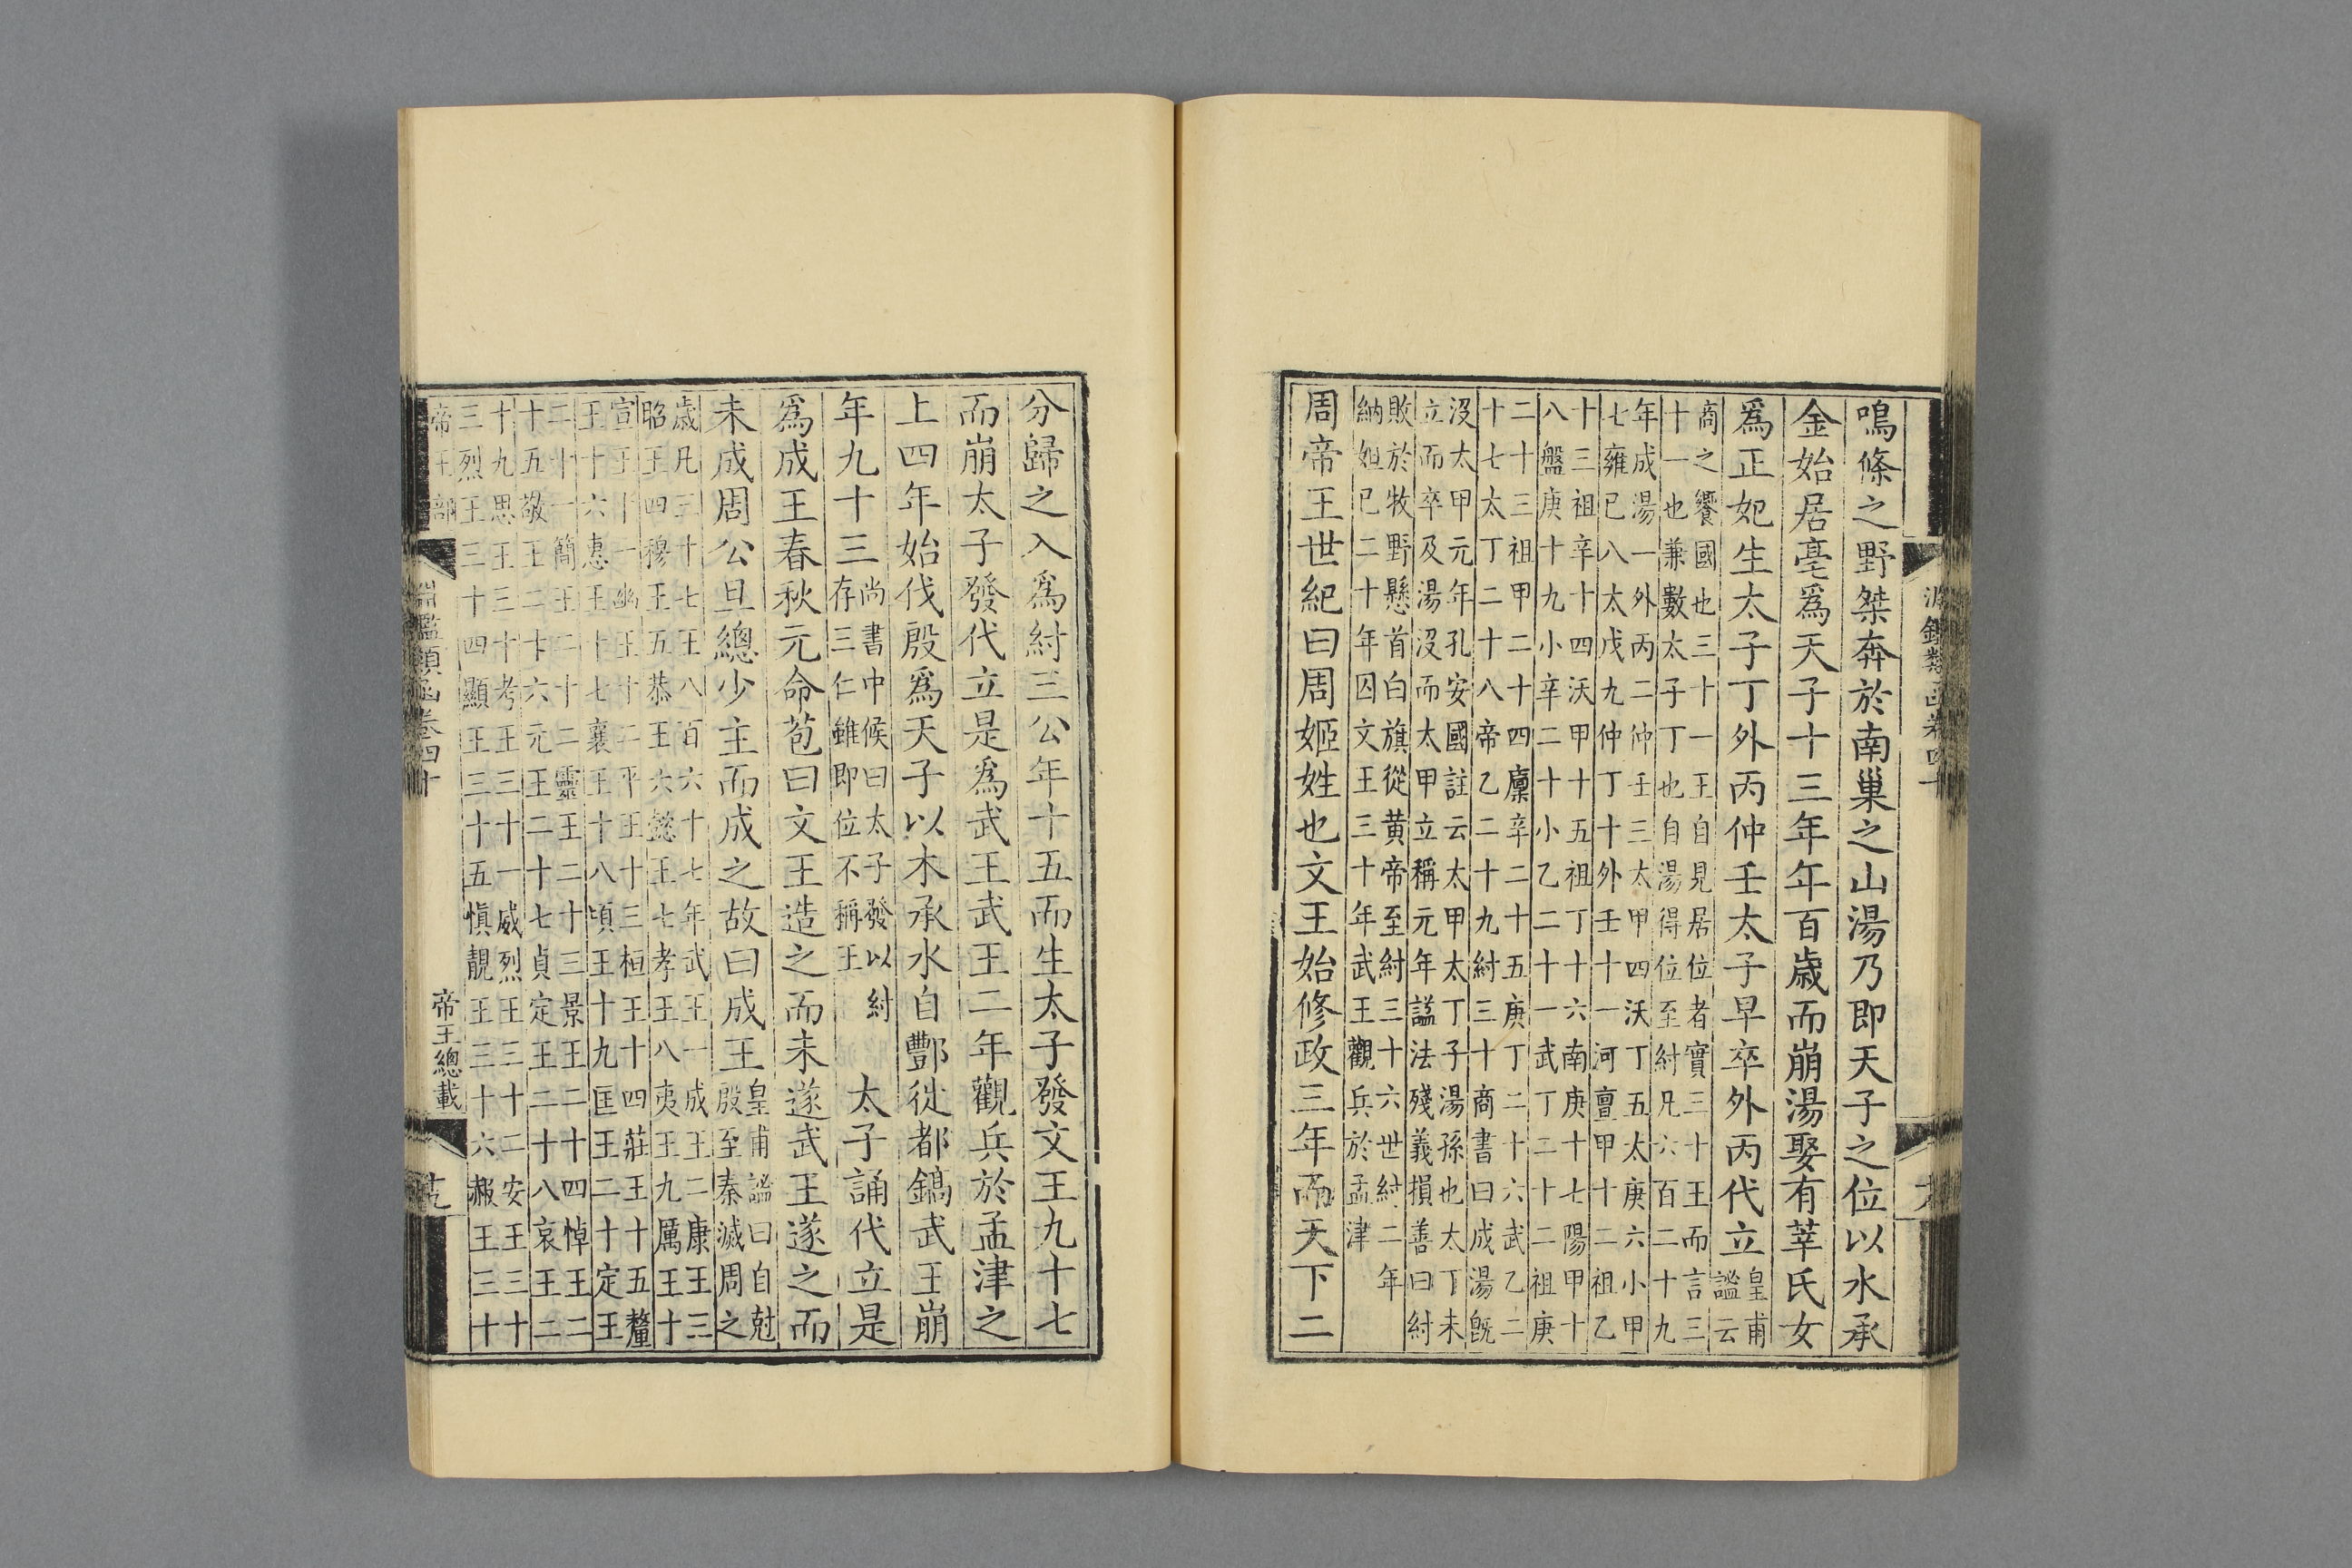 鳴條之野桀奔於南巢之山湯乃即天子之位以水承
金始居亳爲天子十三年年百歲而崩湯娶有莘氏女
爲正妃生太子丁外丙仲壬太子早卒外丙代立
皇甫
謐云
商之饗國也三十一王自見居位者實三十王而言三
十一也兼數太子丁也自湯得位至紂凡六百二十九
年成湯一外丙二仲壬三太甲四沃丁五太庚六小甲
七雍巳八太戊九仲丁十外壬十一河亶甲十二祖乙
十三祖辛十四沃甲十五祖丁十六南庚十七陽甲十
八盤庚十九小辛二十小乙二十一武丁二十二祖庚
二十三祖甲二十四廩辛二十五庚丁二十六武乙二
十七太丁二十八帝乙二十九紂三十商書曰成湯旣
沒太甲元年孔安國註云太甲太丁子湯孫也太丁未
立而卒及湯沒而太甲立稱元年諡法殘義損善曰紂
敗於牧野懸首白旗從黄帝至紂三十六世紂二年
納妲巳二十年囚文王三十年武王觀兵於孟津
周帝王世紀曰周姬姓也文王始修政三年而天下二
分歸之入爲紂三公年十五而生太子發文王九十七
而崩太子發代立是爲武王武王二年觀兵於孟津之
上四年始伐殷爲天子以木承水自酆徙都鎬武王崩
年九十三
尚書中候曰太子發以紂
存三仁雖即位不稱王
太子誦代立是
爲成王春秋元命苞曰文王造之而未遂武王遂之而
未成周公旦總少主而成之故曰成王
皇甫謐曰自尅
殷至秦滅周之
歲凡三十七王八百六十七年武王一成王二康王三
昭王四穆王五恭王六懿王七孝王八夷王九厲王十
宣王十一幽王十二平王十三桓王十四莊王十五釐
王十六惠王十七襄王十八頃王十九匡王二十定王
二十一簡王二十二靈王二十三景王二十四悼王二
十五敬王二十六元王二十七貞定王二十八哀王二
十九思王三十考王三十一威烈王三十二安王三十
三烈王三十四顯王三十五慎靚王三十六赧王三十
帝王部
淵鑑類函卷四十
帝王總載